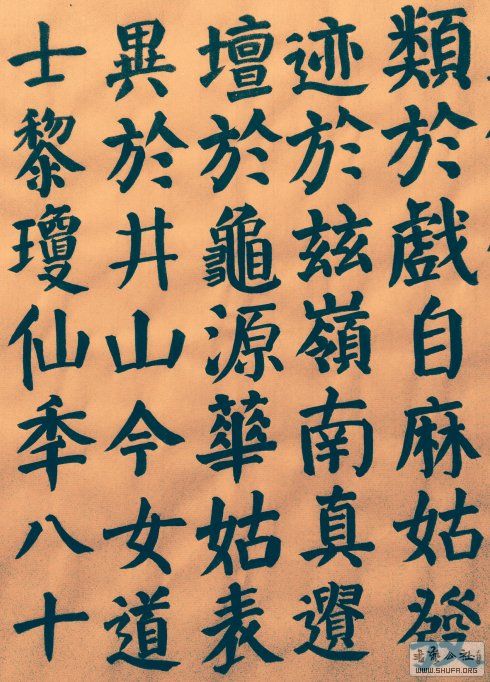 類於戲自麻姑發
迹於玆嶺南真遺
壇於龜源華姑表
異於井山今女道
士黎瓊仙秊八十
WWW.SHUFA.ORG